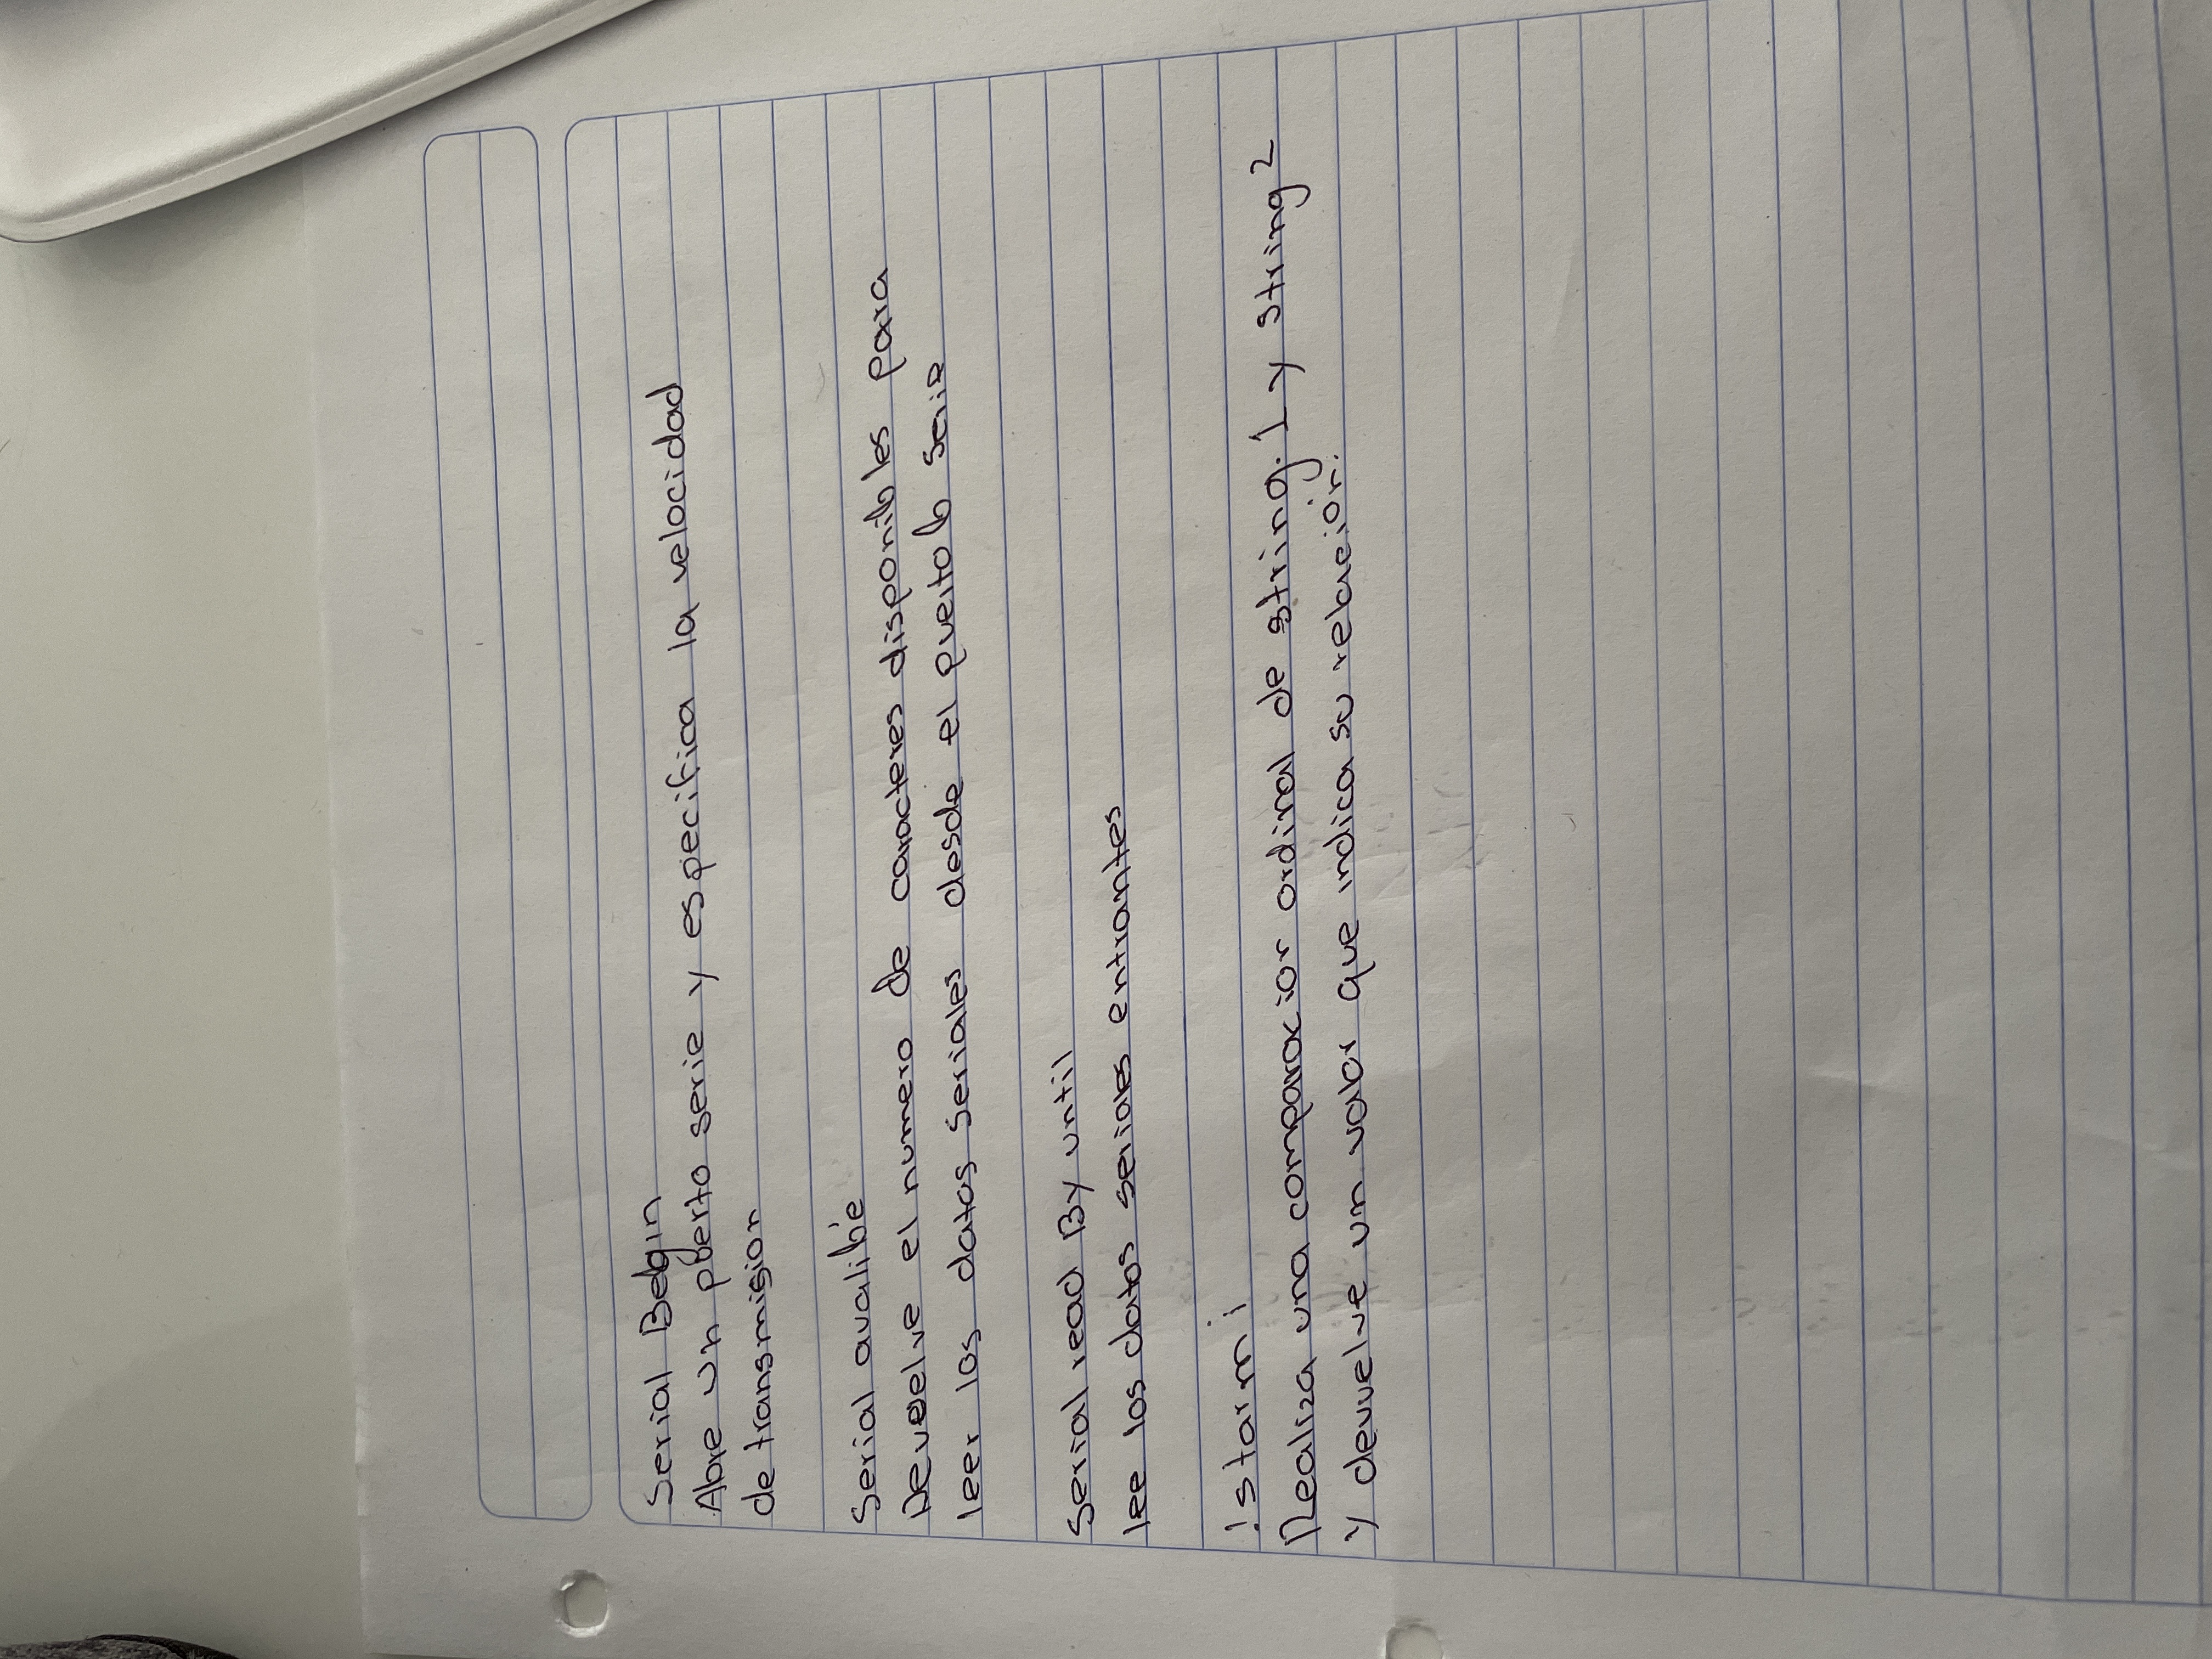 Serial Begin
Abre un puerto serie y especifica la velocidad
de transmision
Serial avalibe
Devuelve el numero de caracteres disponibles para
leer los datos seriales desde el puerto serie
Serial read By until
lee los datos seriales entrantes
Realiza una comparacion ordinal de string 1 y string 2
y devuelve un valor que indica su relación.